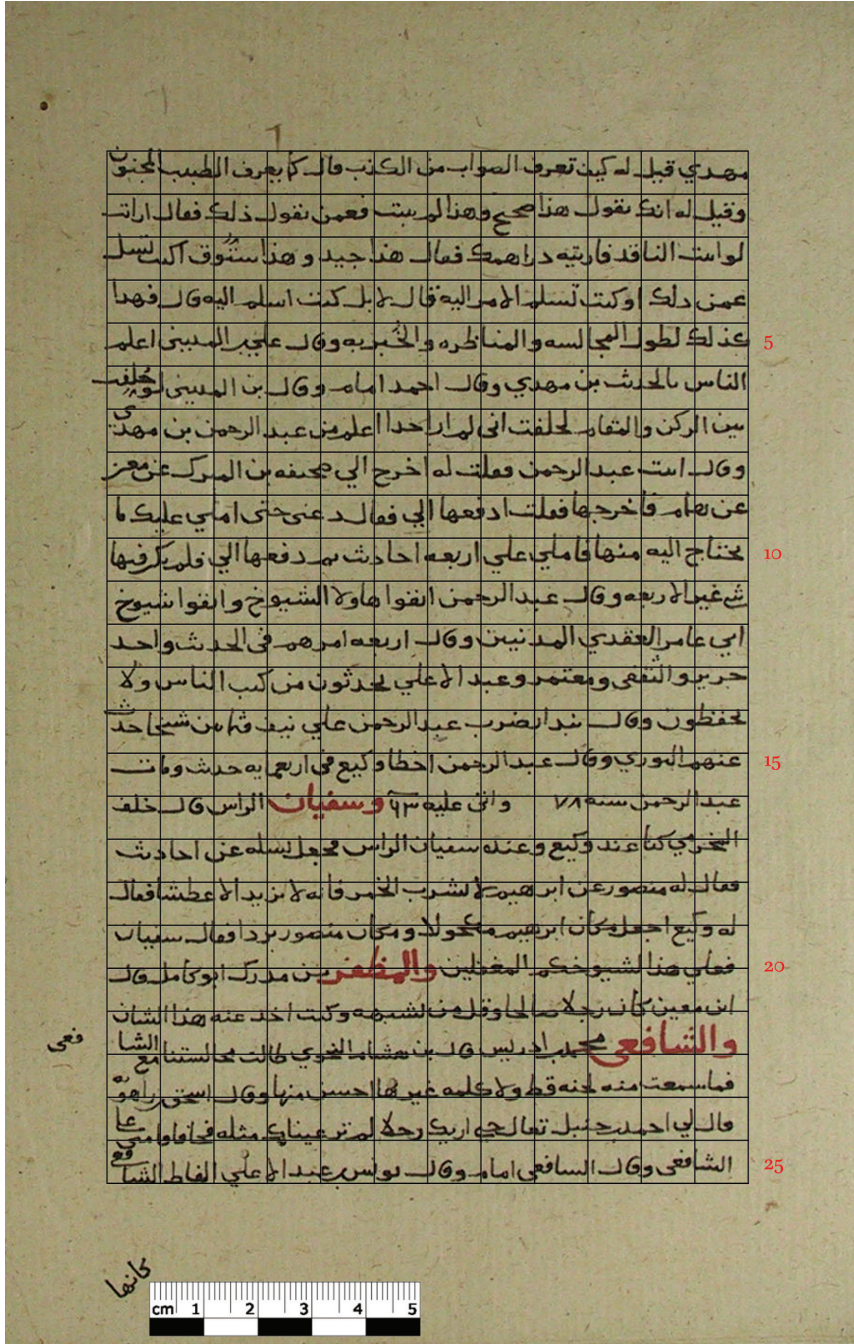 مهدي قيل له كيف تعرف الصواب من الكذب قال كما يعرف الطبيب المجنون
وقيل له انك تقول هذا صحيح وهذا لم يثبت فعمن تقول ذلك فقال ارات
لو اتيت الناقد فاريته دراهمك فقال هذا جيد وهذا ستوق اكنت تسل
عمن ذلك او كنت تسلم الامر اليه قال لا بل كنت اسلم اليه قال فهذا
كذلك لطول المجالسه والمناظره والخبر به وقال علي بن المديني اعلم
الناس بالحدث بن مهدي وقال احمد امام وقال بن المديني لو حلفت
بين الركن والمقام لحلفت اني لم ار احدا اعلم من عبد الرحمن بن مهدي
وقال اتيت عبد الرحمن فقلت له اخرج الي صحيفه بن المبرك عن معمر
عن همام فاخرجها فقلت ادفعها الي فقال دعني حتى املي عليك ما
يحتاج اليه منها فاملي علي اربعه احاديث ثم دفعها الي فلم يكن فيها
شي غير الاربعه وقال عبد الرحمن اتقوا هاولا الشيوخ واتقوا شيوخ
ابي عامر العقدي المدنيين وقال اربعه امرهم في الحدث واحد
جرير والثقفي ومعتمر وعبد الاعلي يحدثون من كتب الناس ولا
يحفظون وقال بندار ضرب عبد الرحمن علي نيف وثمانين شيخا حدث
عنهم الثوري وقال عبد الرحمن اخطا وكيع في اربعمايه حدث ومات
عبد الرحمن سنه ٧٨ واتي عليه ٦٣ وسفيان الراس قال خلف
المخرمي كنا عند وكيع وعنده سفيان الراس فجعل يسله عن احاديث
فقال له منصور عن ابرهيم لا تشرب الخمر فانه لا يزيد الا عطشا فقال
له وكيع اجعل مكان ابرهيم مكحولا ومكان منصور بردا فقال سفيان
فعلي هذا لشيوخكم المغفلين والمظفر بن مدرك ابو كامل قال
ابن معين كان رجلا صالحا وقل من يشبهه وكنت اخذ عنه هذا الشان
والشافعي محمد بن ادريس قال بن هشام النحوي طالت مجالستنا مع الشا
فعي
فما سمعت منه لحنه قط ولا كلمه غيرها احسن منها وقال اسحق راهويه
قال لي احمد بن حنبل تعال حتى اريك رجلا لم تر عيناك مثله فجا فاقامني علي
الشافعي وقال السافعي امام وقال يونس بن عبد الاعلي الفاظ الشافعي
كانها
5
10
15
20
25
cm 1 2 3 4 5